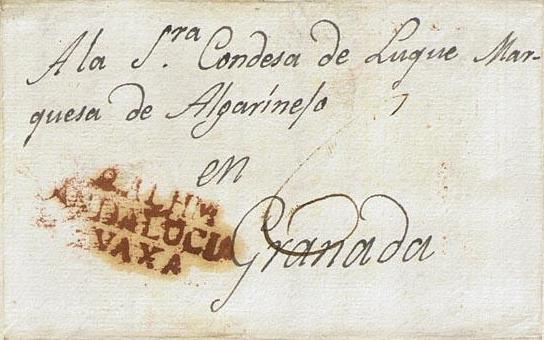 A la S.ra Condesa de Luque Mar-
quesa de Algarinejo
en
Granada
ANDALUCIA
VAXA